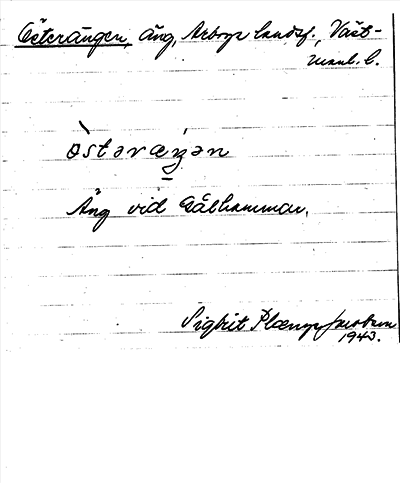 Österängen, äng, Arboga landsf., Väst-
manl. l.
òstəræŋən
Äng vid Gålhammar.
Sigbrit Plænge Jacobson
1943.